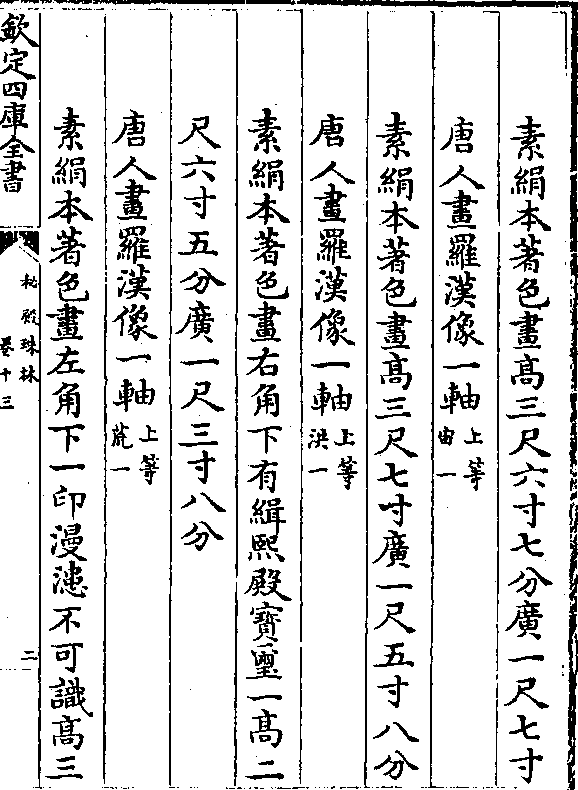 素絹本著色畫髙三尺六寸七分廣一尺七寸
唐人畫羅漢像一軸上等宙一
素絹本著色畫髙三尺七寸廣一尺五寸八分
唐人畫羅漢像一軸上等洪一
素絹本著色畫右角下有緝熙殿寶璽一髙二
尺六寸五分廣一尺三寸八分
唐人畫羅漢像一軸上等荒一
素絹本著色畫左角下一印漫漶不可識髙三
欽定四庫全書
秘殿珠林
卷十三
二